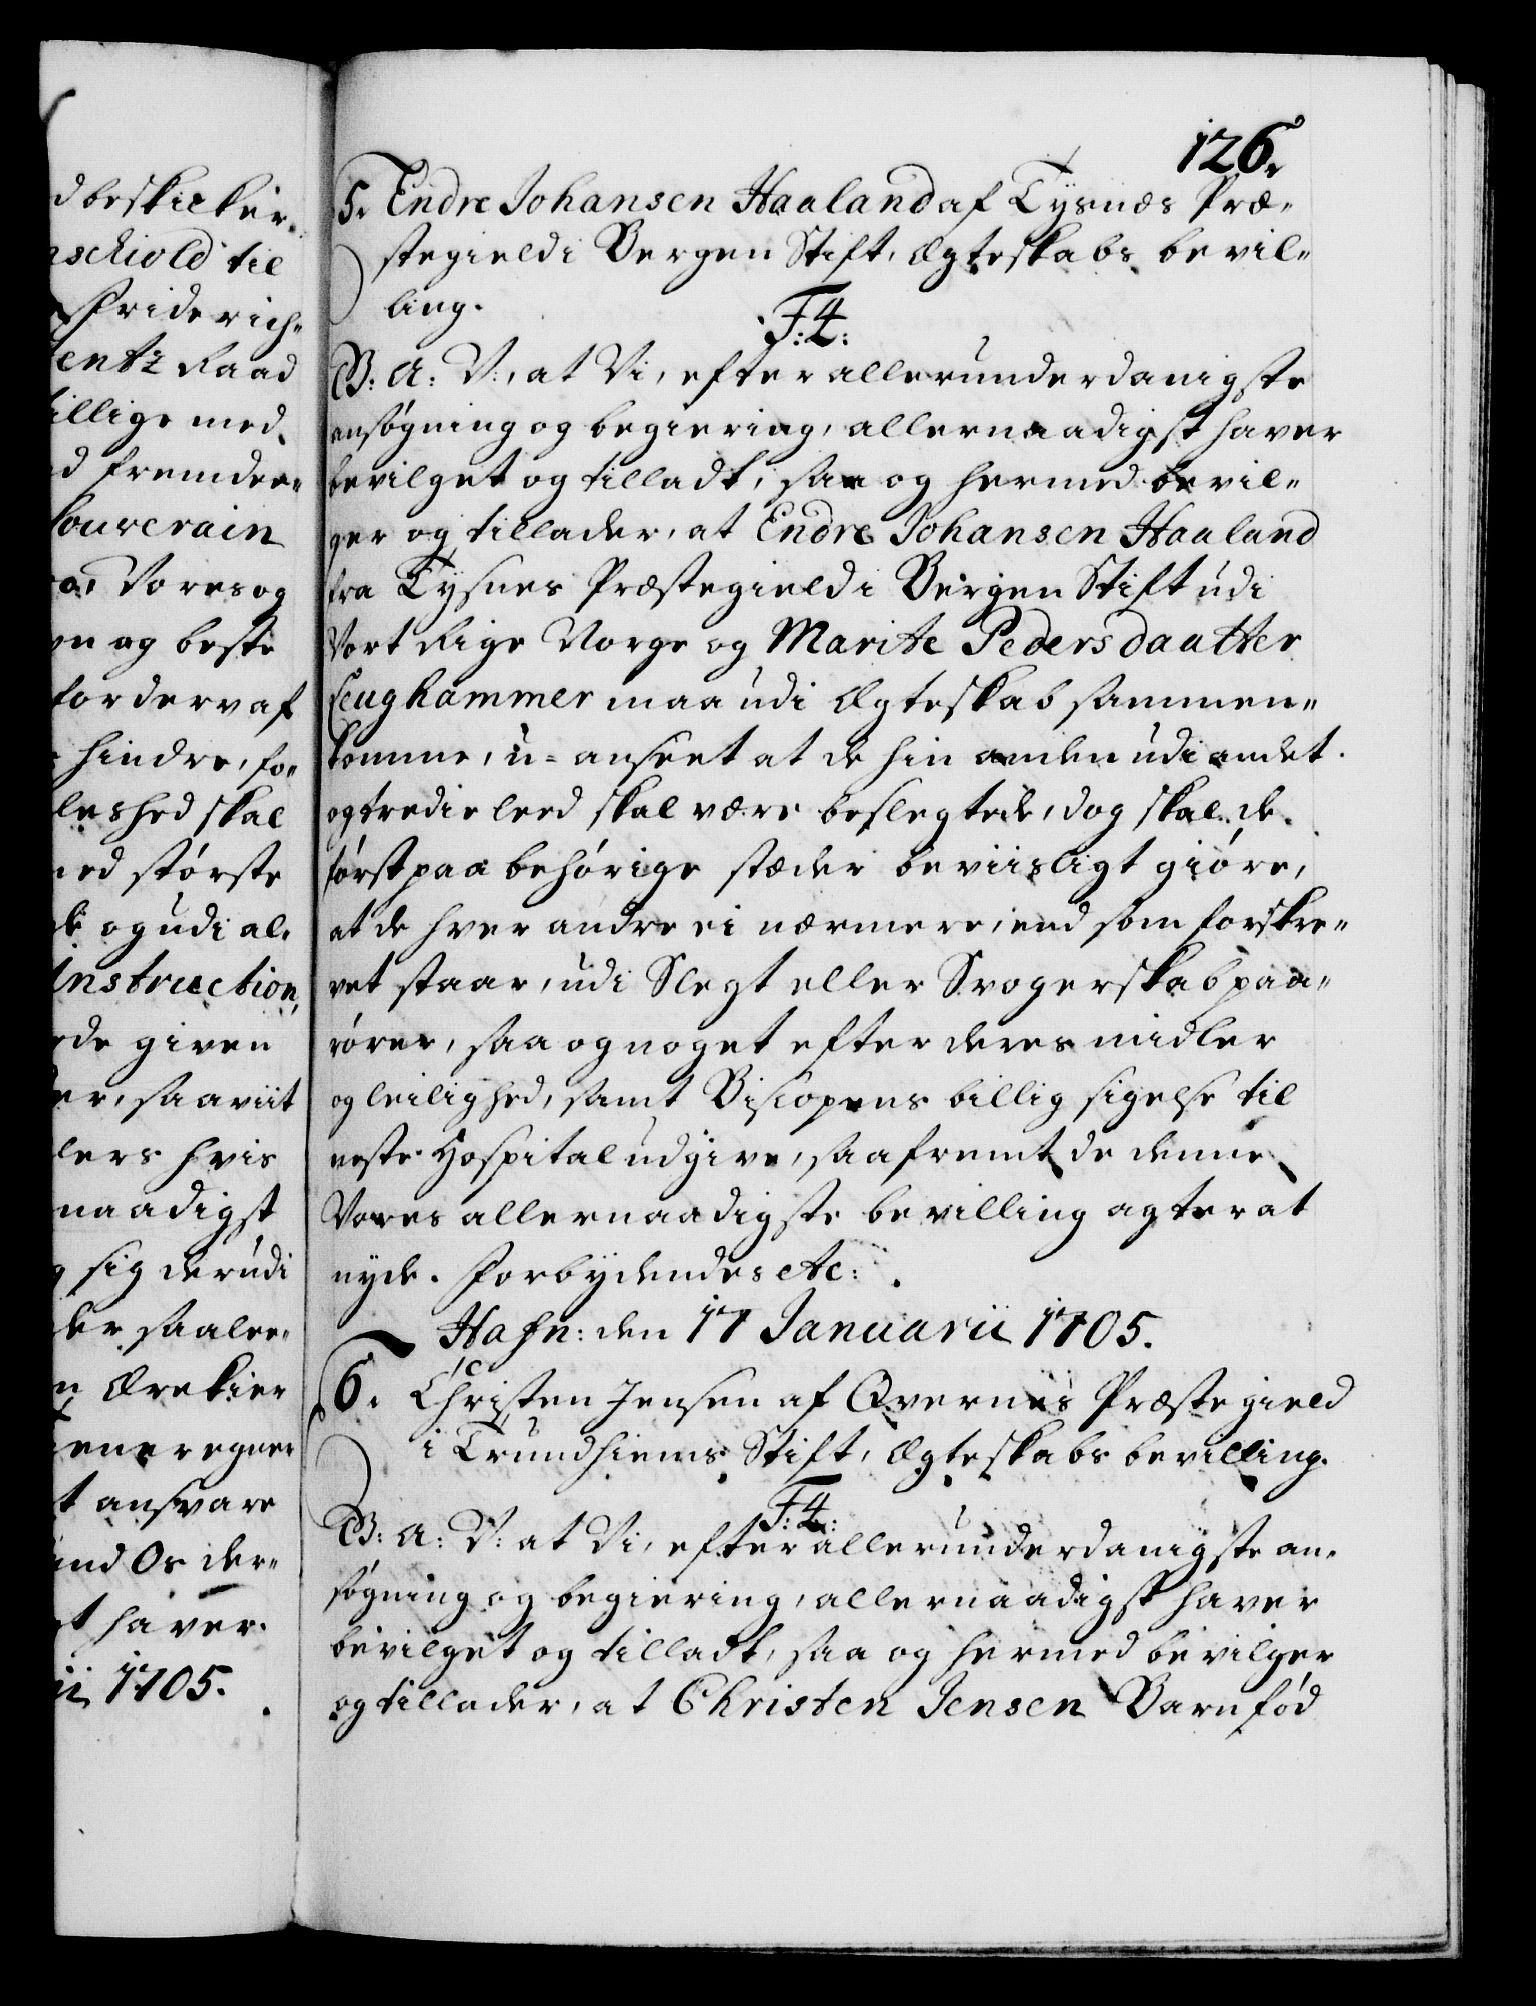 126.
5. Endre Johansen Haaland af Tysnes Præ-
stegield i Bergen Stift, Ægteskabs bevil-
ling.
F: 4:
G: A: V:, at Vi, efter allerunderdanigste
ansøgning og begiering, allernaadigst haver
bevilget og tilladt, saa og hermed bevil-
ger og tillader, at Endre Johansen Haaland
fra Tysnes Præstegield i Bergen Stift udi
Vort Rige Norge og Marite Pedersdaatter
hammer maa udi Ægteskab sammen-
komme, u-anseet at de hin anden udi andet
og tredie leed skal være beslegtede, dog skal de
først paa behørige stæder beviisligt giøre,
at de hver andre ei nærmere, end som forskre-
vet staar, udi Slegt eller Svogerskab paa-
rører, saa og noget efter deres midler
og leilighed, samt Biscopens billig sigelse til
neste Hospital udgive, saafremt de denne
Vores allernaadigste bevilling agter at
nyde. Forbydendes etc:
Hafn: den 17 Januarii 1705.
6. Christen Jensen af Qvernes Præstegield
i Trundhiems Stift, Ægteskabs bevilling.
F: 4:
G: A: V: at Vi, efter allerunderdanigste an-
søgning og begiering, allernaadigst haver
bevilget og tilladt, saa og hermed bevilger
og tillader, at Christen Jensen Barnfød
d beskicker
schiold til
Friderich-
entz Raad
tillige med
d fremdee-
Souverain
Vores og
n og beste
fordervaf
hindre, fo-
leshed skal
med største
og udi al-
Instruction,
de given
er, saaviit
lers hvis
naadigst
sig derudi
der saalee-
n Ærekier
ene regner
t ansvare
ind Os der-
t haver.
ii 1705.